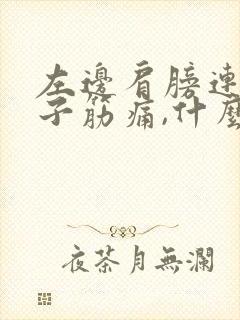 左邊肩膀連
子筋痛,什麼
夜茶月無瀾